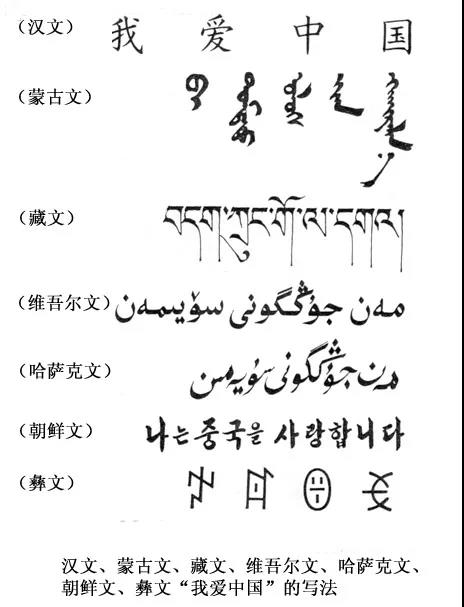 （汉文） 我 爱 中 国
（蒙古文）
（藏文） བདག་ཀྲུང་གོ་ལ་དགའ།
（维吾尔文） مەن جۇڭگونى سۆيىمەن
（哈萨克文） مەن جۇڭگونى سۇيەمىن
（朝鲜文） 나는 중국을 사랑합니다
（彝文）
汉文、蒙古文、藏文、维吾尔文、哈萨克文、
朝鲜文、彝文“我爱中国”的写法